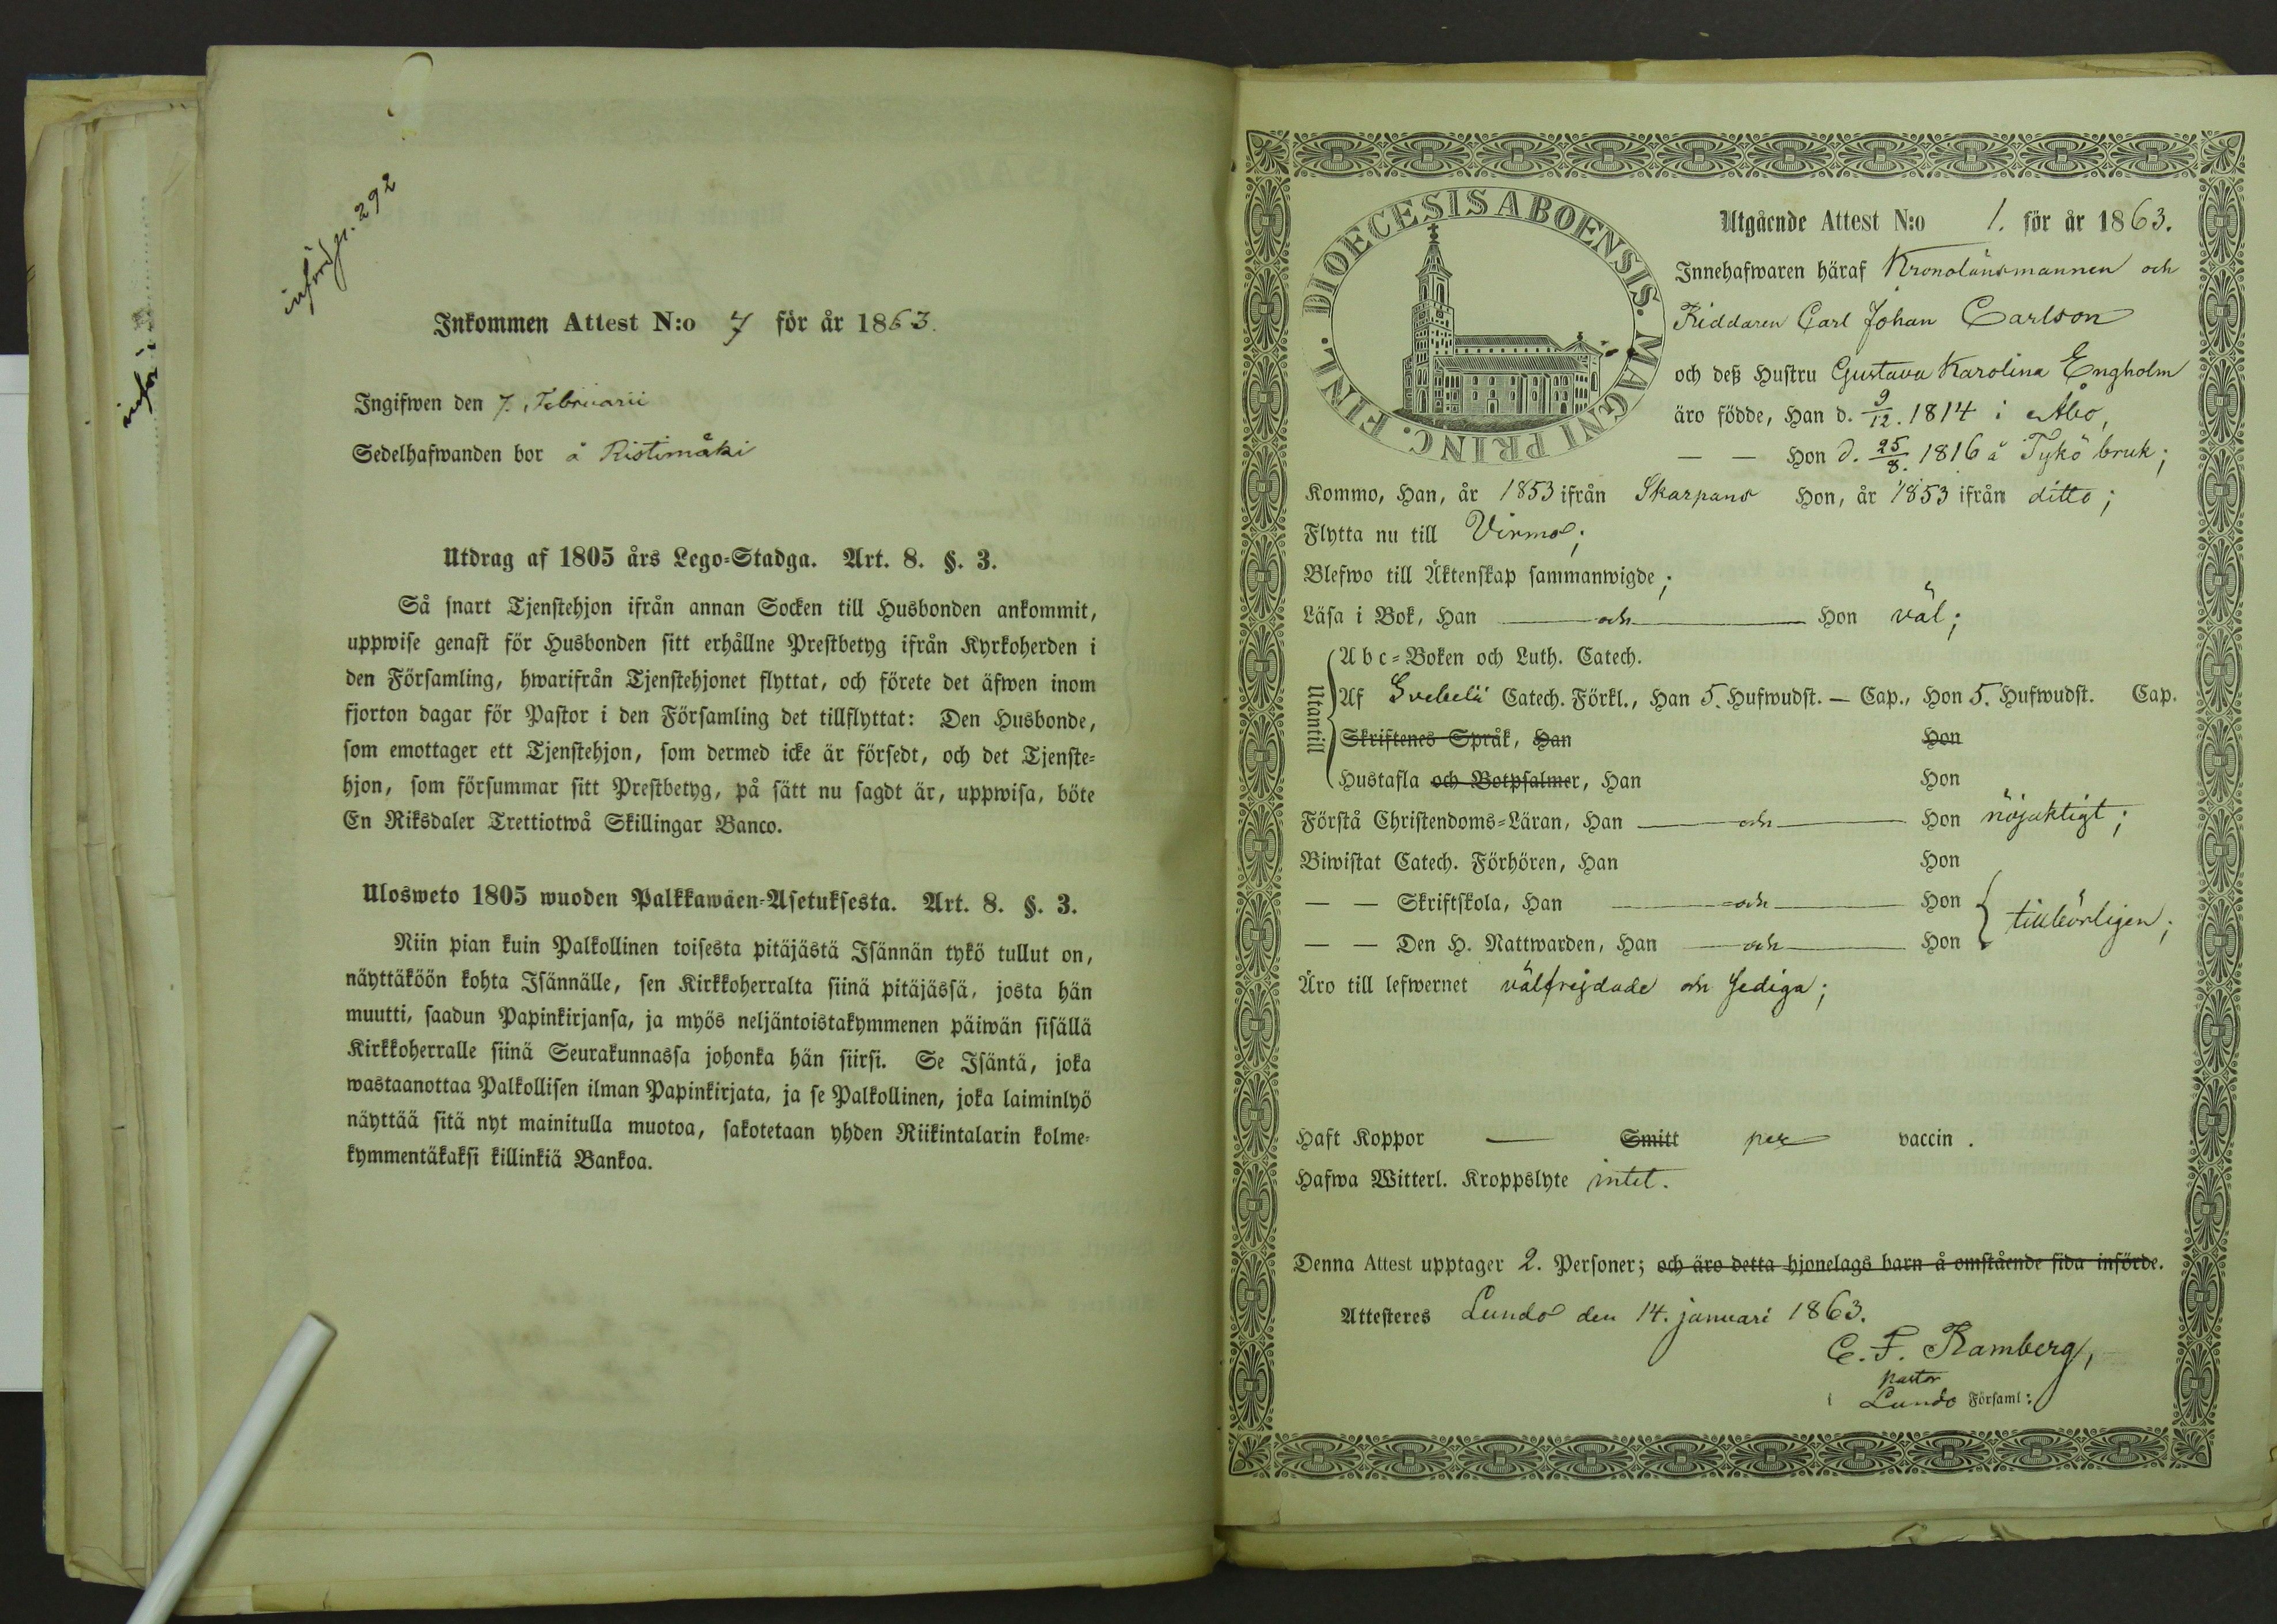 införd p. 292
Inkommen Attest N:o 7 för år 1863.
Ingifwen den 7. Februarii
Sedelhafwanden bor å Ristimäki
Utdrag af 1805 års Lego-Stadga. Art. 8. §. 3.
Så snart Tjenstehjon ifrån annan Socken till Husbonden ankommit,
uppwise genast för Husbonden sitt erhållne Prestbetyg ifrån Kyrkoherden i
den Församling, hwarifrån Tjenstehjonet flyttat, och förete det äfwen inom
fjorton dagar för Pastor i den Församling det tillflyttat: Den Husbonde,
som emottager ett Tjenstehjon, som dermed icke är försedt, och det Tjenste-
hjon, som försummar sitt Prestbetyg, på sätt nu sagdt är, uppwisa, böte
En Riksdaler Trettiotwå Skillingar Banco.
Ulosweto 1805 wuoden Palkkawäen-Asetuksesta. Art. 8. §. 3.
Niin pian kuin Palkollinen toisesta pitäjästä Isännän tykö tullut on,
näyttäköön kohta Isännälle, sen Kirkkoherralta siinä pitäjässä, josta hän
muutti, saadun Papinkirjansa, ja myös neljäntoistakymmenen päiwän sisällä
Kirkkoherralle siinä Seurakunnassa johonka hän siirsi. Se Isäntä, joka
wastaanottaa Palkollisen ilman Papinkirjata, ja se Palkollinen, joka laiminlyö
näyttää sitä nyt mainitulla muotoa, sakotetaan yhden Riikintalarin kolme-
kymmentäkaksi killinkiä Bankoa.
DIOECESIS ABOENSIS. MAGNI PRINC. FINL.
Utgående Attest N:o 1. för år 1863.
Innehafwaren häraf Kronolänsmannen och
Riddaren Carl Johan Carlson
och deß Hustru Gustava Karolina Engholm
äro födde, Han d. 9/12. 1814 i Åbo,
— — Hon d. 25/8. 1816 å Tykö bruk;
Kommo, Han, år 1853 ifrån Skarpans Hon, år 1853 ifrån ditto;
Flytta nu till Virmo;
Blefwo till Äktenskap sammanwigde;
Läsa i Bok, Han — och — Hon väl;
Utantill
Abc-Boken och Luth. Catech.
Af Svebelii Catech. Förkl., Han 5. Hufwudst. — Cap., Hon 5. Hufwudst. Cap.
Skriftenes Språk, Han Hon
Hustafla och Botpsalmer, Han Hon
Förstå Christendoms-Läran, Han — och — Hon nöjaktigt;
Biwistat Catech. Förhören, Han Hon
— — Skriftskola, Han — och — Hon
tillbörligen;
— — Den H. Nattwarden, Han — och — Hon
Äro till lefwernet välfrejdade och sediga;
Haft Koppor — Smitt per vaccin.
Hafwa Witterl. Kroppslyte intet.
Denna Attest upptager 2. Personer; och äro detta hjonelags barn å omstående sida införde.
Attesteres Lundo den 14. januari 1863.
C. F. Ramberg,
pastor
i Lundo Församl: